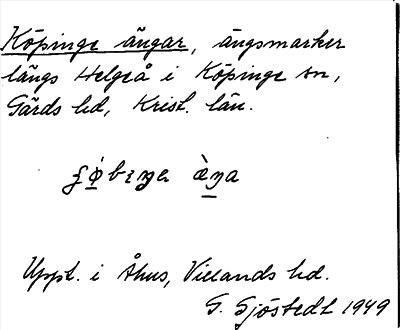 Köpinge ängar, ängsmarker
längs Helgeå i Köpinge sn,
Gärds hd, Krist. län.
Uppt. i Åhus, Villands hd.
G. Sjöstedt 1949